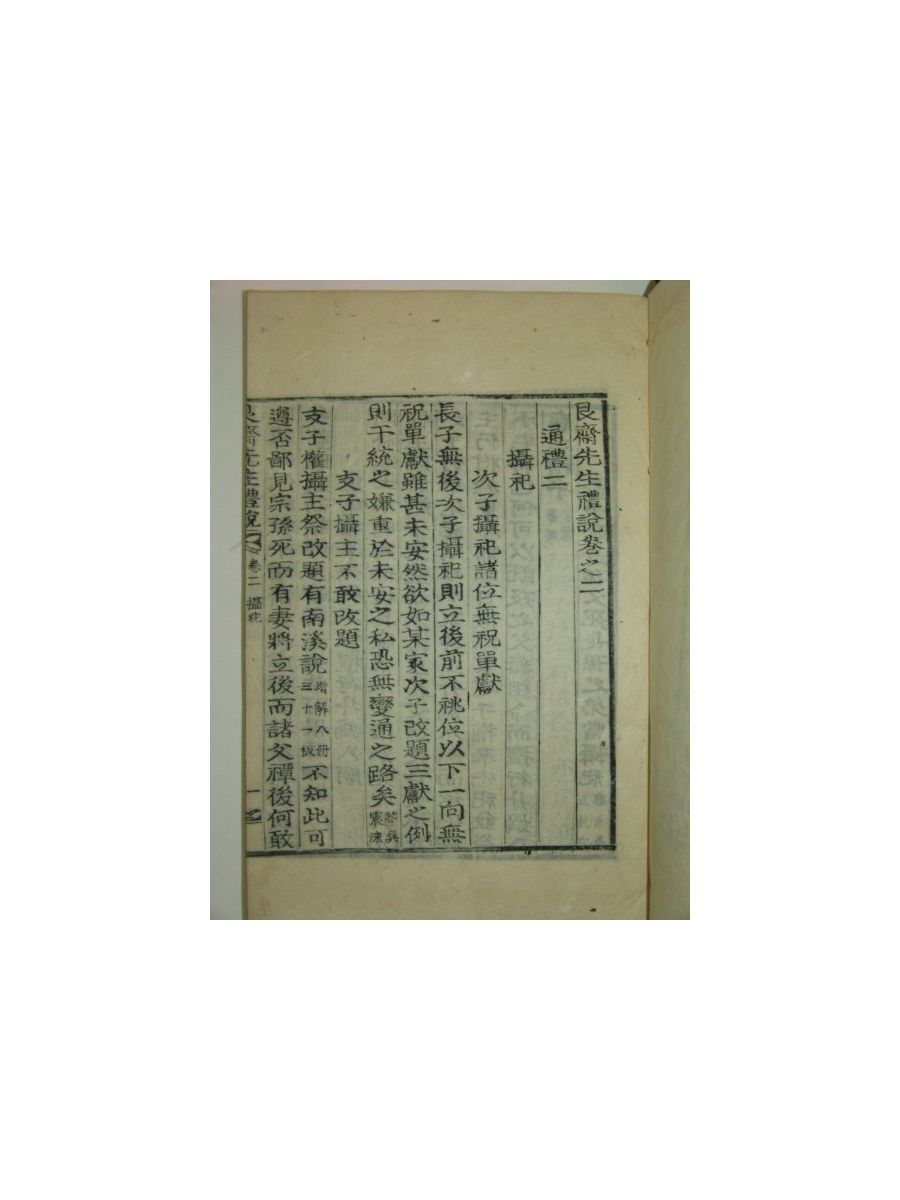 艮齋先生禮說卷之二
通禮二
攝祀
次子攝祀諸位無祝單獻
長子無後次子攝祀則立後前不祧位以下一向無
祝單獻雖甚未安然欲如某家次子改題三獻之例
則干統之嫌重於未安之私恐無變通之路矣
支子攝主不敢改題
支子權攝主祭改題有南溪說增解八冊三十一板不知此可
遵否鄙見宗孫死而有妻將立後而諸父禫後何敢
艮齋先生禮說 卷二 攝祀 一